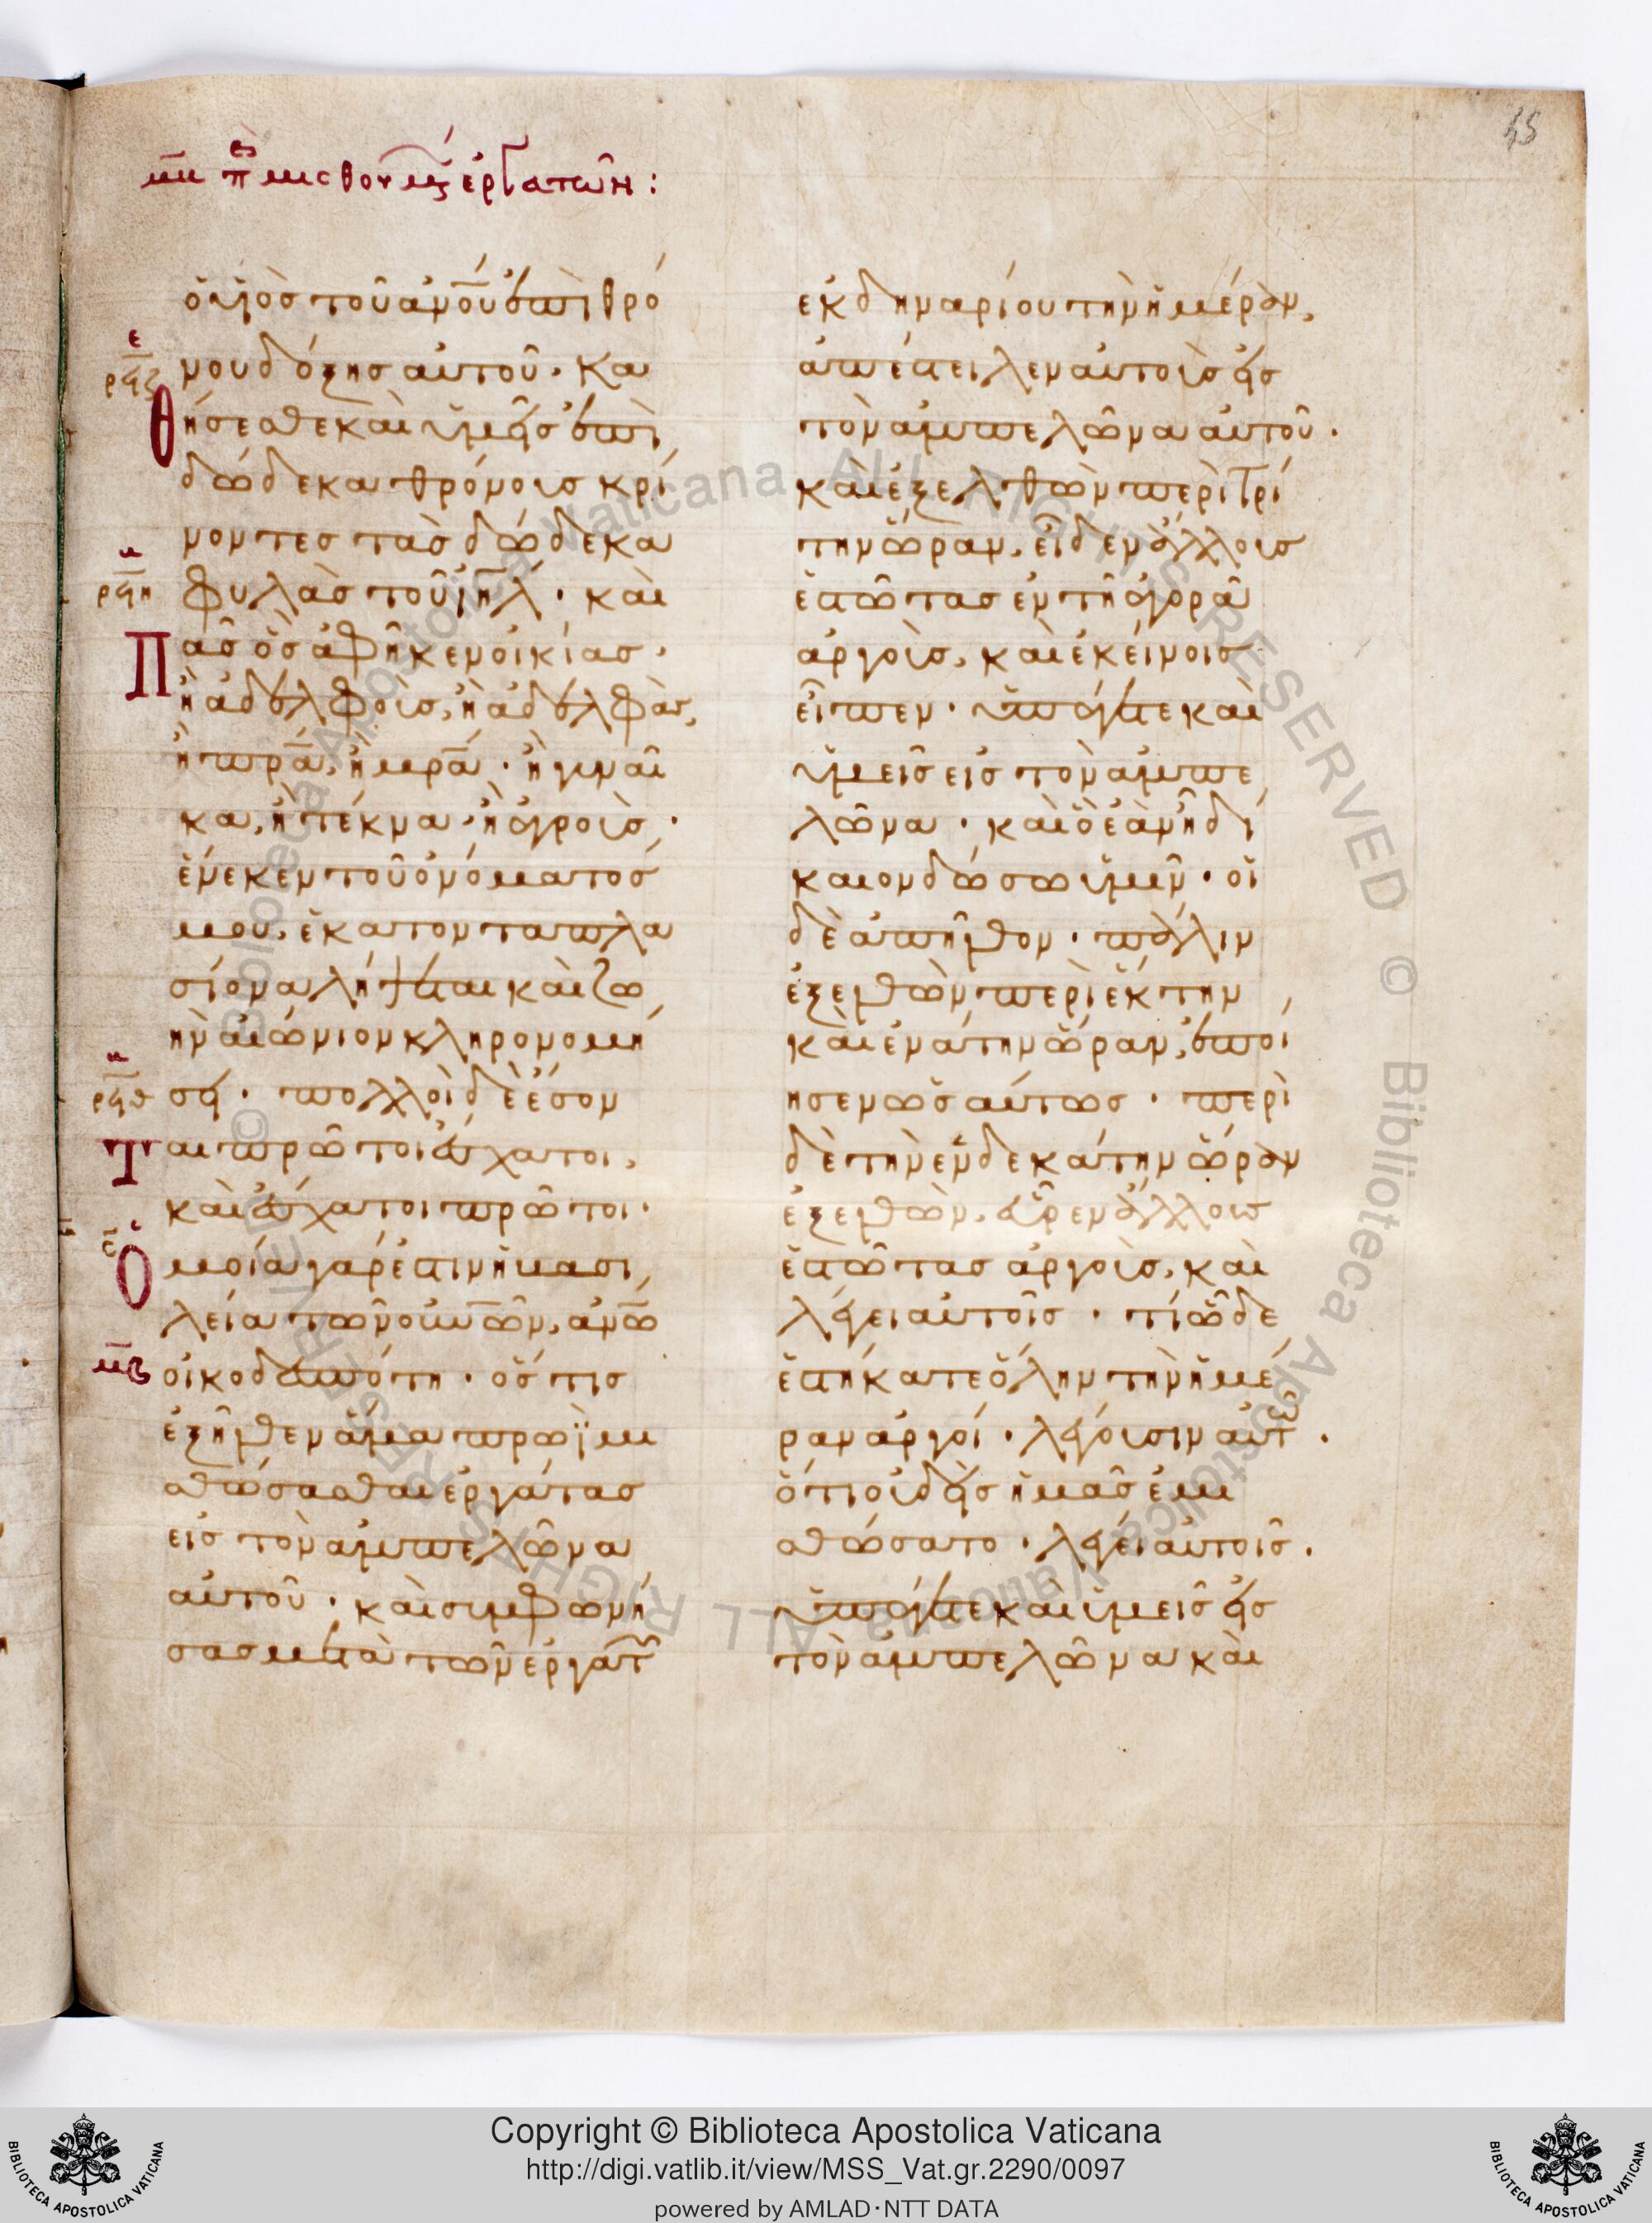 μβ περὶ τῶν μισθουμένων ἐργατῶν:
ὁ υἱὸς τοῦ ἀνου ἐπὶ θρό
νου δόξης αὐτοῦ· κα
θήσεσθε καὶ ὑμεῖς ἐπὶ
δώδεκα θρόνους κρί
νοντες τὰς δώδεκα
φυλὰς τοῦ ιηλ· καὶ
Πᾶς ὃς ἀφῆκεν οἰκίας·
ἢ ἀδελφοὺς, ἢ ἀδελφὰς,
ἢ πρα, ἢ μρα· ἢ γυναῖ
κα, ἢ τέκνα· ἢ ἀγροὺς·
ἕνεκεν τοῦ ὀνόματός
μου, ἑκατονταπλα
σίονα λήψεται καὶ ζω
ὴν αἰώνιον κληρονομή
σει· πολλοὶ δὲ ἔσον
Ται πρῶτοι ἔσχατοι,
καὶ ἔσχατοι πρῶτοι·
Ὁμοία γάρ ἐστιν ἡ βασι
λεία τῶν οὐνῶν, ἀνω
οἰκοδεσπότη· ὅστις
ἐξῆλθεν ἅμα πρωῒ μι
σθώσασθαι ἐργάτας
εἰς τὸν ἀμπελῶνα
αὐτοῦ· καὶ συμφωνή
σας μετὰ τῶν ἐργατ
ἐκ δηναρίου τὴν ἡμέραν,
ἀπέστειλεν αὐτοὺς εἰς
τὸν ἀμπελῶνα αὐτοῦ·
καὶ ἐξελθὼν περὶ τρί
την ὥραν, εἶδεν ἄλλους
ἑστῶτας ἐν τῇ ἀγορᾷ
ἀργοὺς, καὶ ἐκείνοις
εἶπεν· ὑπάγετε καὶ
ὑμεῖς εἰς τὸν ἀμπε
λῶνα· καὶ ὃ ἐὰν ᾖ δί
καιον δώσω ὑμῖν· οἱ
δὲ ἀπῆλθον· πάλιν
ἐξελθὼν περὶ ἕκτην
καὶ ἐνάτην ὥραν, ἐποί
ησεν ὡσαύτως· περὶ
δὲ τὴν ἑνδεκάτην ὥραν
ἐξελθὼν, εὗρεν ἄλλους
ἑστῶτας ἀργοὺς, καὶ
λέγει αὐτοῖς· τί ὧδε
ἑστήκατε ὅλην τὴν ἡμέ
ραν ἀργοί· λέγουσιν αὐτῶ·
ὅτι οὐδεὶς ἡμᾶς ἐμι
σθώσατο· λέγει αὐτοῖς·
ὑπάγετε καὶ ὑμεῖς εἰς
τὸν ἀμπελῶνα καὶ
45
Copyright © Biblioteca Apostolica Vaticana
http://digi.vatlib.it/view/MSS_Vat.gr.2290/0097
powered by AMLAD·NTT DATA
BIBLIOTECA APOSTOLICA VATICANA
BIBLIOTECA APOSTOLICA VATICANA